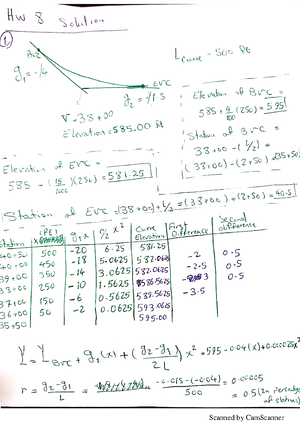 HW 8 Solution
1.
BVC
g₁ = -4
L curve = 500 ft
EVC
g₂ = -1.5
V = 38+00
Elevation = 585.00 ft
Elevation of BVC =
585 + 4/100 (250) = 595
Station of BVC =
38+00 - (L/2) =
(38+00) - (2+50) = 35+50
Elevation of EVC =
585 - (1.5/100)(250) = 581.25
Station of EVC = (38+00) + L/2 = (38+00) + (2+50) = 40.5
Station x (ft) g₁x r/2 x² Curve Elevation First Difference Second difference
40+50 500 -20 6.25 581.25
40+00 450 -18 5.0625 582.0625 -2 0.5
39+00 350 -14 3.0625 -2.5 0.5
38+00 250 -10 1.5625 586.5625 -3 0.5
37+00 150 -6 0.5625 589.5625 -3.5
36+00 50 -2 0.0625 593.0625
35+50 595.00
Y = Y BVC + g₁(x) + (g₂-g₁/2L) x² = 595 - 0.04(x) + 0.000025x²
r = g₂-g₁/L = -0.015-(-0.04)/500 = 0.00005
= 0.5 (in percentage of stations)
Scanned by CamScanner